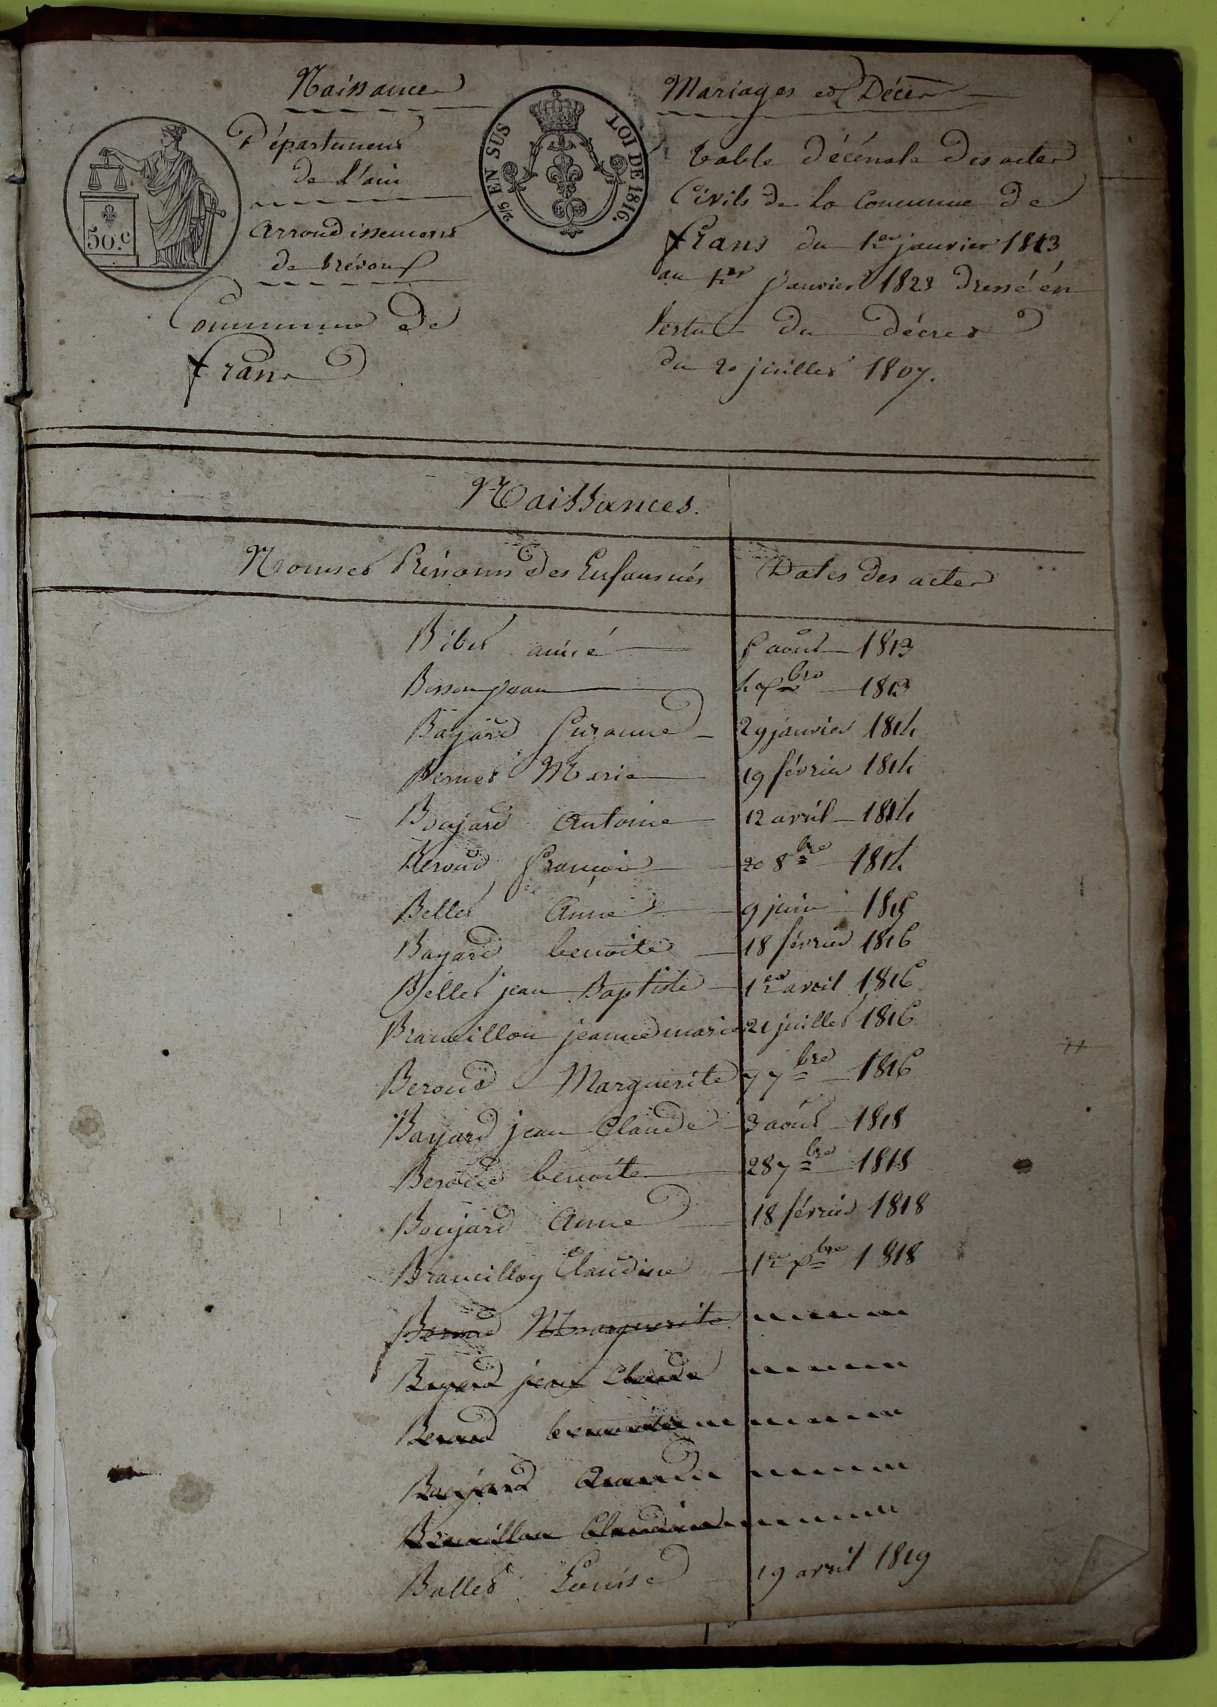 Naissances
Département
de l'ain
arrondissement
de trévoux
Commune de
frans
50.c
2/5 EN SUS
LOI DE 1816.
Mariages et Décès
table décénale des actes
Civils de la Commune de
frans du 1er janvier 1813
au 1er janvier 1823 dressé én
Vertu du décret
du 20 juillet 1807.
Naissances.
Noms et Prénoms des Enfans nés Dates des actes
Bibet aimé août 1813
Bosson jean 1813
Bayard Suzanne 29 janvier 1814
Bernet Marie 19 février 1814
Boujard Antoine 12 avril 1814
Beroud françois 20 8bre 1814
Bellet Anne 9 juin 1815
Bayard benoite 18 février 1816
Bellet jean Baptiste 1er avril 1816
Brameillon jeanne marie 21 juillet 1816
Beroud Marguerite 7 7bre 1816
Bayard jean Claude 3 août 1818
Beroud benoite 28 7bre 1818
Boujard Anne 18 février 1818
Brameillon Claudine 1er xbre 1818
Beroud Marguerite
Bayard jean Claude
Beroud benoite
Boujard
Brameillon Claudine
Ballet Louise 19 avril 1819